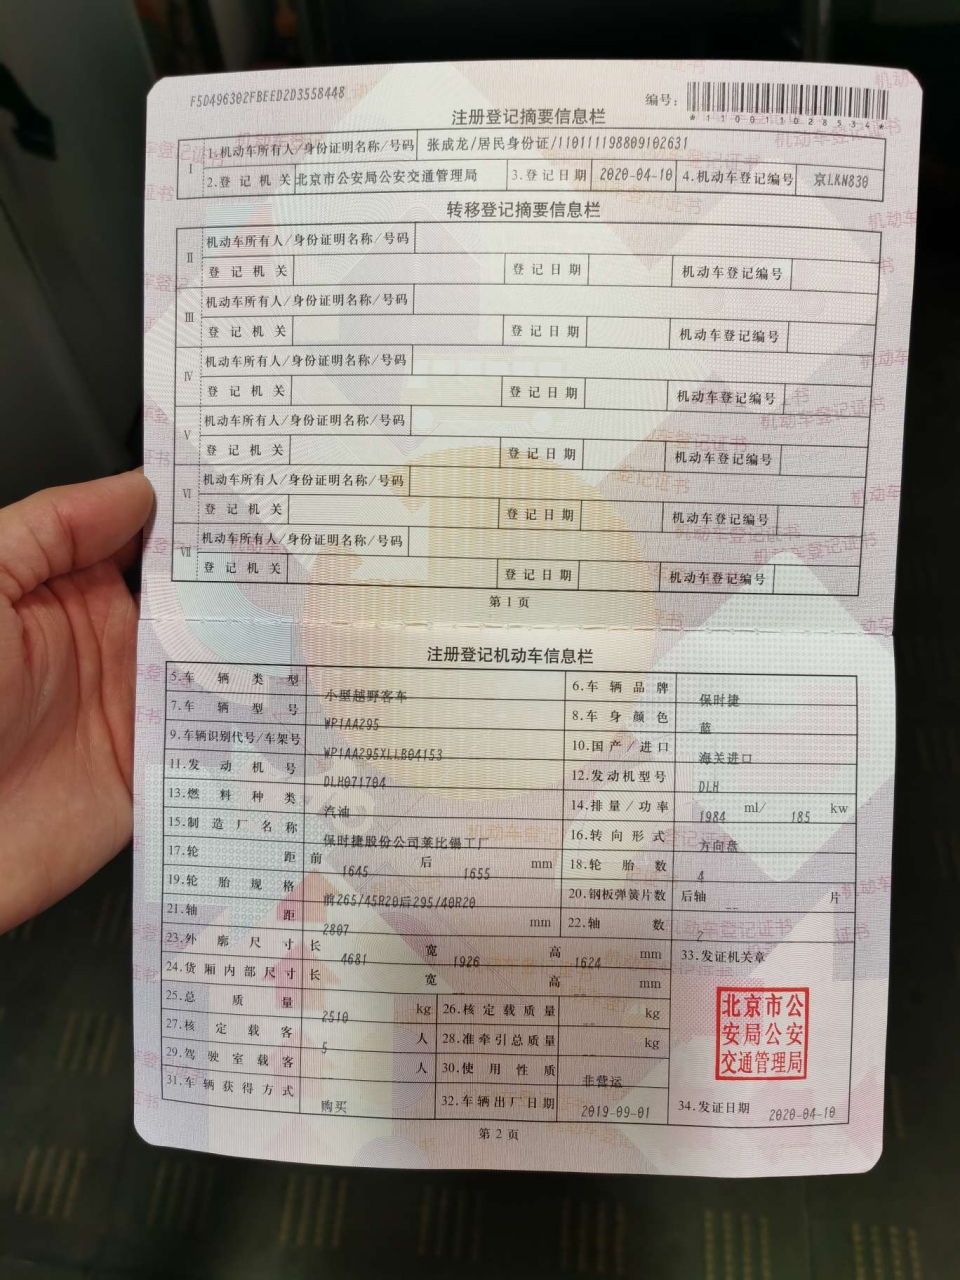 F5D496302FBEED2D3558448
编号：
*110011028534*
注册登记摘要信息栏
Ⅰ 1.机动车所有人/身份证明名称/号码 张成龙/居民身份证/110111198809102631
2.登记机关 北京市公安局公安交通管理局 3.登记日期 2020-04-10 4.机动车登记编号 京LKN830
转移登记摘要信息栏
Ⅱ 机动车所有人/身份证明名称/号码
登记机关 登记日期 机动车登记编号
Ⅲ 机动车所有人/身份证明名称/号码
登记机关 登记日期 机动车登记编号
Ⅳ 机动车所有人/身份证明名称/号码
登记机关 登记日期 机动车登记编号
Ⅴ 机动车所有人/身份证明名称/号码
登记机关 登记日期 机动车登记编号
Ⅵ 机动车所有人/身份证明名称/号码
登记机关 登记日期 机动车登记编号
Ⅶ 机动车所有人/身份证明名称/号码
登记机关 登记日期 机动车登记编号
第1页
注册登记机动车信息栏
5.车辆类型 小型越野客车 6.车辆品牌 保时捷
7.车辆型号 WP1AA295 8.车身颜色 蓝
9.车辆识别代号/车架号 WP1AA295XLLB04153 10.国产/进口 海关进口
11.发动机号 DLH071704 12.发动机型号 DLH
13.燃料种类 汽油 14.排量/功率 1984 ml/ 185 kw
15.制造厂名称 保时捷股份公司莱比锡工厂 16.转向形式 方向盘
17.轮距 前 1645 后 1655 mm 18.轮胎数 4
19.轮胎规格 前265/45R20后295/40R20 20.钢板弹簧片数 后轴 -- 片
21.轴距 2807 mm 22.轴数 2
23.外廓尺寸 长 4681 宽 1926 高 1624 mm 33.发证机关章
24.货厢内部尺寸 长 -- 宽 -- 高 -- mm
25.总质量 2510 kg 26.核定载质量 -- kg
27.核定载客 5 人 28.准牵引总质量 -- kg
29.驾驶室载客 -- 人 30.使用性质 非营运
31.车辆获得方式 购买 32.车辆出厂日期 2019-09-01 34.发证日期 2020-04-10
北京市公
安局公安
交通管理局
第2页